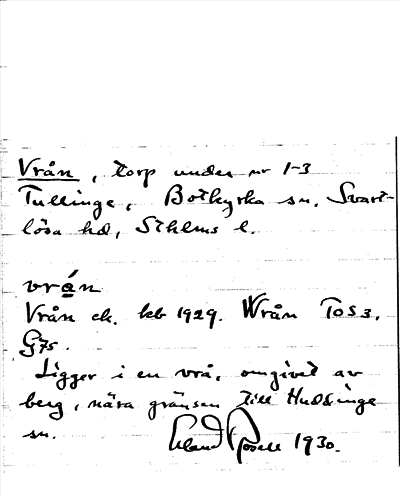 Vrån, torp under nr 1-3
Tullinge, Botkyrka sn. Svart-
lösa hd, Sthlms l.
vrån
Vrån ek. kb 1929. Wrån TOS 3.
G 75.
Ligger i en vrå, omgived av
berg, nära gränsen till Huddinge
sn. Erland Rosell 1930.